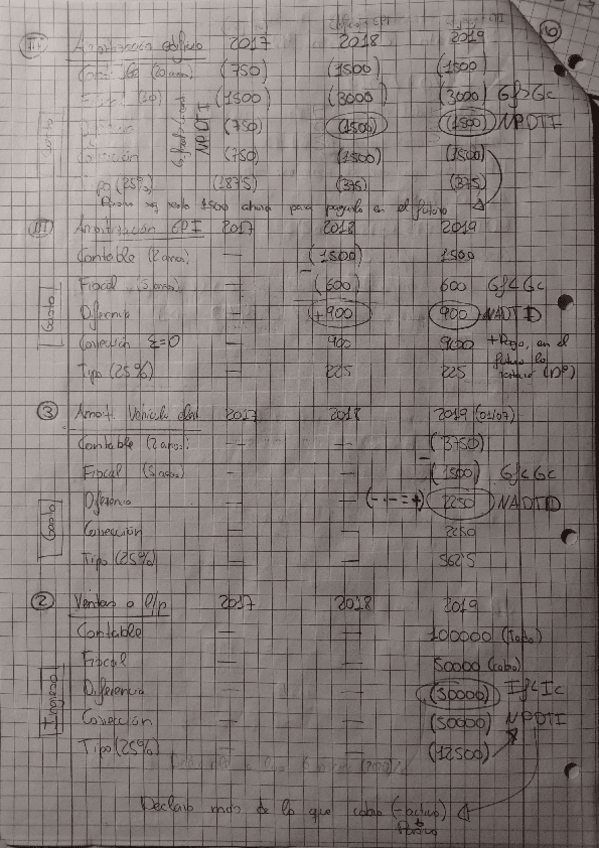 6
III Amortización edificio 2017 2018 2019
Contable (20 años) (750) (1500) (1500)
Fiscal (10) (1500) (3000) (3000) Gf>Gc
Diferencia (750) (1500) (1500) NPDTI
Corrección (750) (1500) (1500)
Tipo (25%) (187'5) (375) (375)
1500 ahora para pagarlo en el futuro
III Amortización CPI 2017 2018 2019
Contable (2 años) — (1500) 1500
Fiscal (5 años) — (600) 600 Gf<Gc
Gasto
Diferencia — (+900) 900 NADTD
Corrección Σ=0 — 900 900 +Pago, en el
futuro lo
Tipo (25%) — 225 225 (Dº)
3 Amort. Vehículo 2017 2018 2019 (01/07)
Contable (2 años) — — (3750)
Fiscal (5 años) — — (1500) Gf<Gc
Gasto
Diferencia — — (- - = +) 2250 NADTD
Corrección — — 2250
Tipo (25%) — — 562'5
2 Ventas a l/p 2017 2018 2019
Contable — — 100000 (Todo)
Fiscal — — 50000 (cobro)
Ingreso
Diferencia — — (50000) If<Ic
Corrección — — (50000) NPDTI
Tipo (25%) — — (12500)
Declaro más de lo que cobro (-activo)
Pasivo